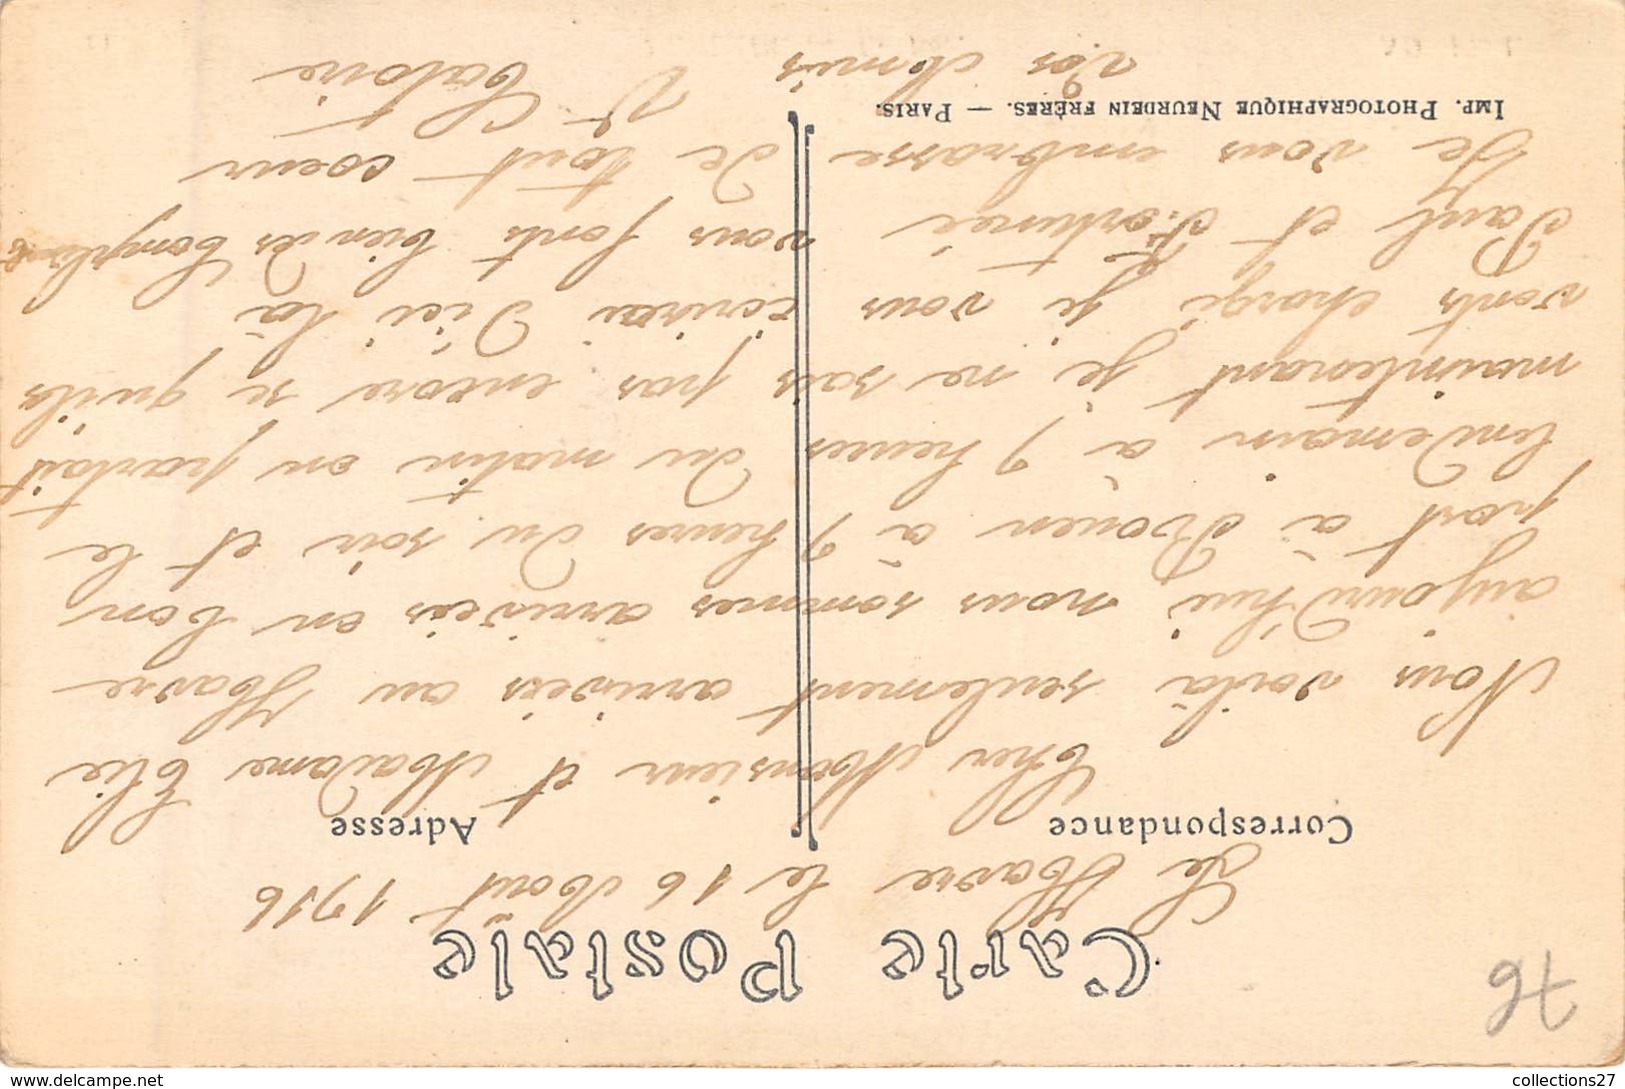 76
Carte Postale
Le Havre le 16 Aout 1916
Correspondance
Adresse
Cher Monsieur et Madame Elie
Nous voila seulement arrivés au Havre
aujourd'hui nous sommes arrivés en bon
port à Rouen à 9 heures du soir et le
lendemain à 9 heures du matin on partait
maintenant je ne sais pas encore se quils
vonts chargé je vous écrirai d'ici là
Paul et Fortuné vous fonts bien des Compliments
Je vous embrasse de tout coeur
Imp. Photographique Neurdein frères. — Paris.
Vos Amis
collections27